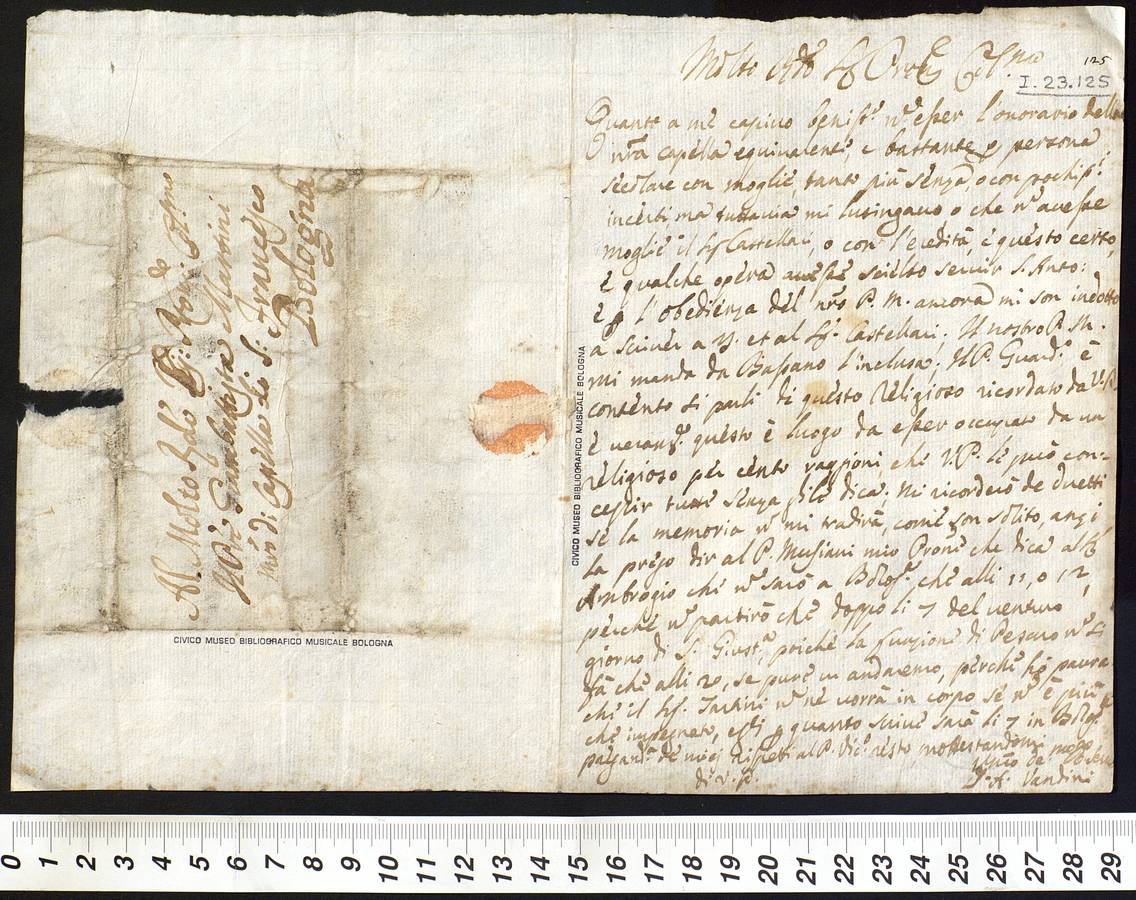 Al Molto Rdo Pre:
Pre Giambatista Martini
Mro di Capella di S: Francesco
Bologna
CIVICO MUSEO BIBLIOGRAFICO MUSICALE BOLOGNA
CIVICO MUSEO BIBLIOGRAFICO MUSICALE BOLOGNA
125
I.23.125
Molto Rdo
Quanto a me capivo l'onorario della
nra capella equivalente, e bastante p persona
secolare con moglie, tanto più senza, o con
incerti ma tuttavia mi lusingavo o che avesse
moglie il Sr Castellari, o con l'eredità, e questo certo,
e qualche opera avesse scielto servir S. Anto:
e p l'obedienza del nro P. M. ancora mi son indotto
a scriver a et al Sr. Castellari; Il nostro P. M.
mi manda da Bassano l'inclusa; Il P. Guard: è
contento si parli di questo Religioso ricordato da V. P.
è questo è luogo da esser occupato da un
religioso per cento raggioni, che V. P. le può con-
cepir tutte senza dica; Mi ricorderò de duetti
se la memoria mi tradirà, come son solito, anzi
la prego dir al P. Musiani mio Prone che dica al
Ambrogio che sarò a che alli 11, o 12,
perché partirò che doppo li 7 del venturo
giorno di S. poiché la funzione di Pesaro si
fa che alli 20, se pure vi andaremo, perché hò paura
che il Sr. Tartini ne vorrà in corpo se è più
che impegnato, egli p quanto scrive sarà li 7 in
miei rispetti al P. resto
di V. P.
F. A. Vandini
0 1 2 3 4 5 6 7 8 9 10 11 12 13 14 15 16 17 18 19 20 21 22 23 24 25 26 27 28 29